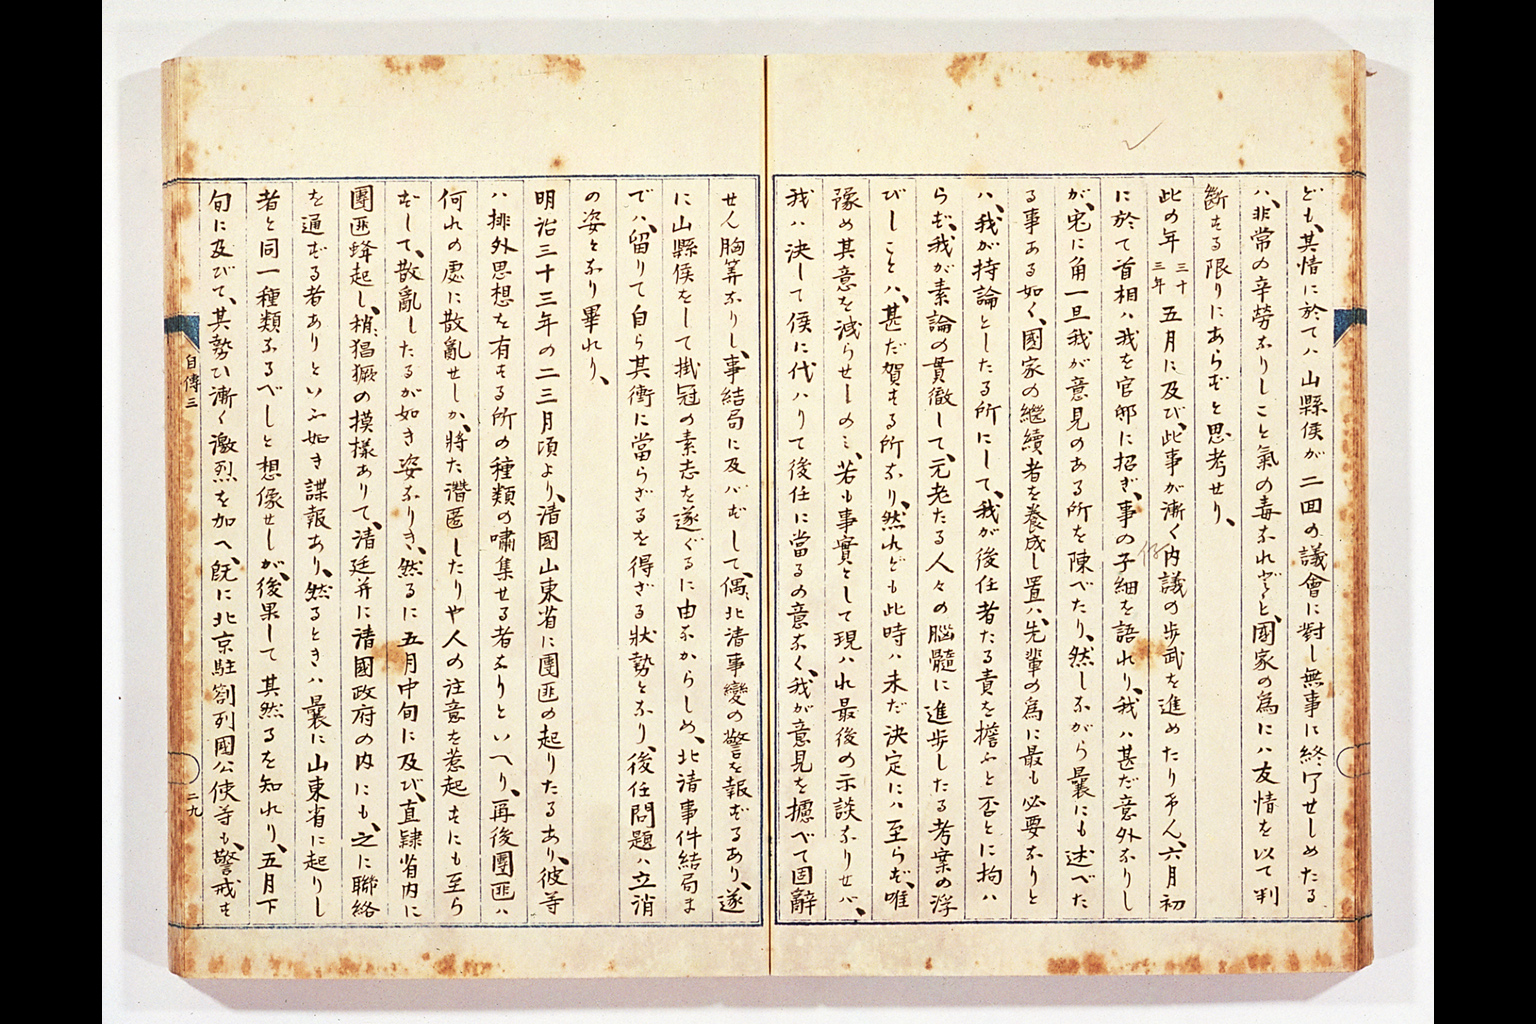 ども、其情に於てハ山縣侯が二回の議會に對し無事に終了せしめたる
ハ、非常の辛勞なりしこと氣の毒なれど、國家の爲にハ友情を以て判
斷する限りにあらずと思考せり、
此の年三十三年五月に及び、此事が漸く内議の歩武を進めたり
に於て首相ハ我を官邸に招ぎ、事の子細を語れり、我ハ甚だ意外なりし
が、兎に角一旦我が意見のある所を陳べたり、然しながら曩にも述べた
る事ある如く、國家の繼續者を養成し置ハ、先輩の爲に最も必要なりと
ハ、我が持論としたる所にして、我が後任者たる責を擔ふと否とに拘ハ
らず、我が素論の貫徹して、元老たる人々の腦髓に進歩したる考案の浮
びしことハ、甚だ賀する所なり、然れども此時ハ未だ決定にハ至らず、唯
豫め其意を減らせしのミ、若も事實として現ハれ最後の示談なりせバ、
我ハ決して侯に代ハりて後任に當るの意なく、我が意見を攄べて固辭
せん胸算なりし、事結局に及バずして、偶、北清事變の警を報ずるあり、遂
に山縣侯をして掛冠の素志を遂ぐるに由なからしめ、北清事件結局ま
でハ、留りて自ら其衝に當らざるを得ざる狀勢となり、後任問題ハ立消
の姿となり畢れり、
明治三十三年の二三月頃より、清國山東省に團匪の起りたるあり、彼等
ハ排外思想を有する所の種類の嘯集せる者なりといへり、再後團匪ハ
何れの處に散亂せしか、將た潛匿したりや人の注意を惹起もにも至ら
ずして、散亂したるが如き姿なりき、然るに五月中旬に及び、直隸省内に
團匪蜂起し、梢猖獗の模樣ありて、清廷并に清國政府の内にも、之に聯絡
を通ずる者ありといふ如き諜報あり、然るときハ曩に山東省に起りし
者と同一種類なるべしと想像せしが、後果して其然るを知れり、五月下
旬に及びて、其勢ひ漸く激烈を加へ、既に北京駐劄列國公使等も、警戒も
自傳三
二九